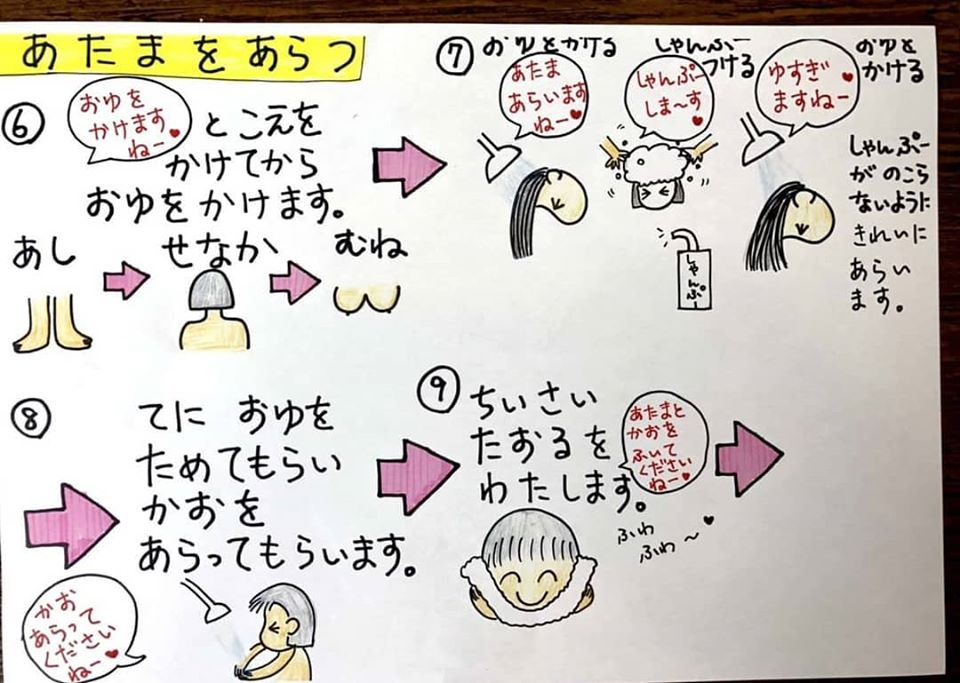 あたまをあらう
⑥
おゆを
かけます
ねー
とこえを
かけてから
おゆをかけます。
あし
せなか
むね
⑦
おゆをかける
あたま
あらいます
ねー
しゃんぷー
つける
しゃんぷー
しま〜す
しゃんぷー
おゆを
かける
ゆすぎ
ますねー
しゃんぷー
がのこら
ないように
きれいに
あらい
ます。
⑧
てに おゆを
ためてもらい
かおを
あらってもらいます。
かお
あらって
ください
ねー
⑨
ちいさい
たおるを
わたします。
あたまと
かおを
ふいて
ください
ねー
ふわ
ふわ〜